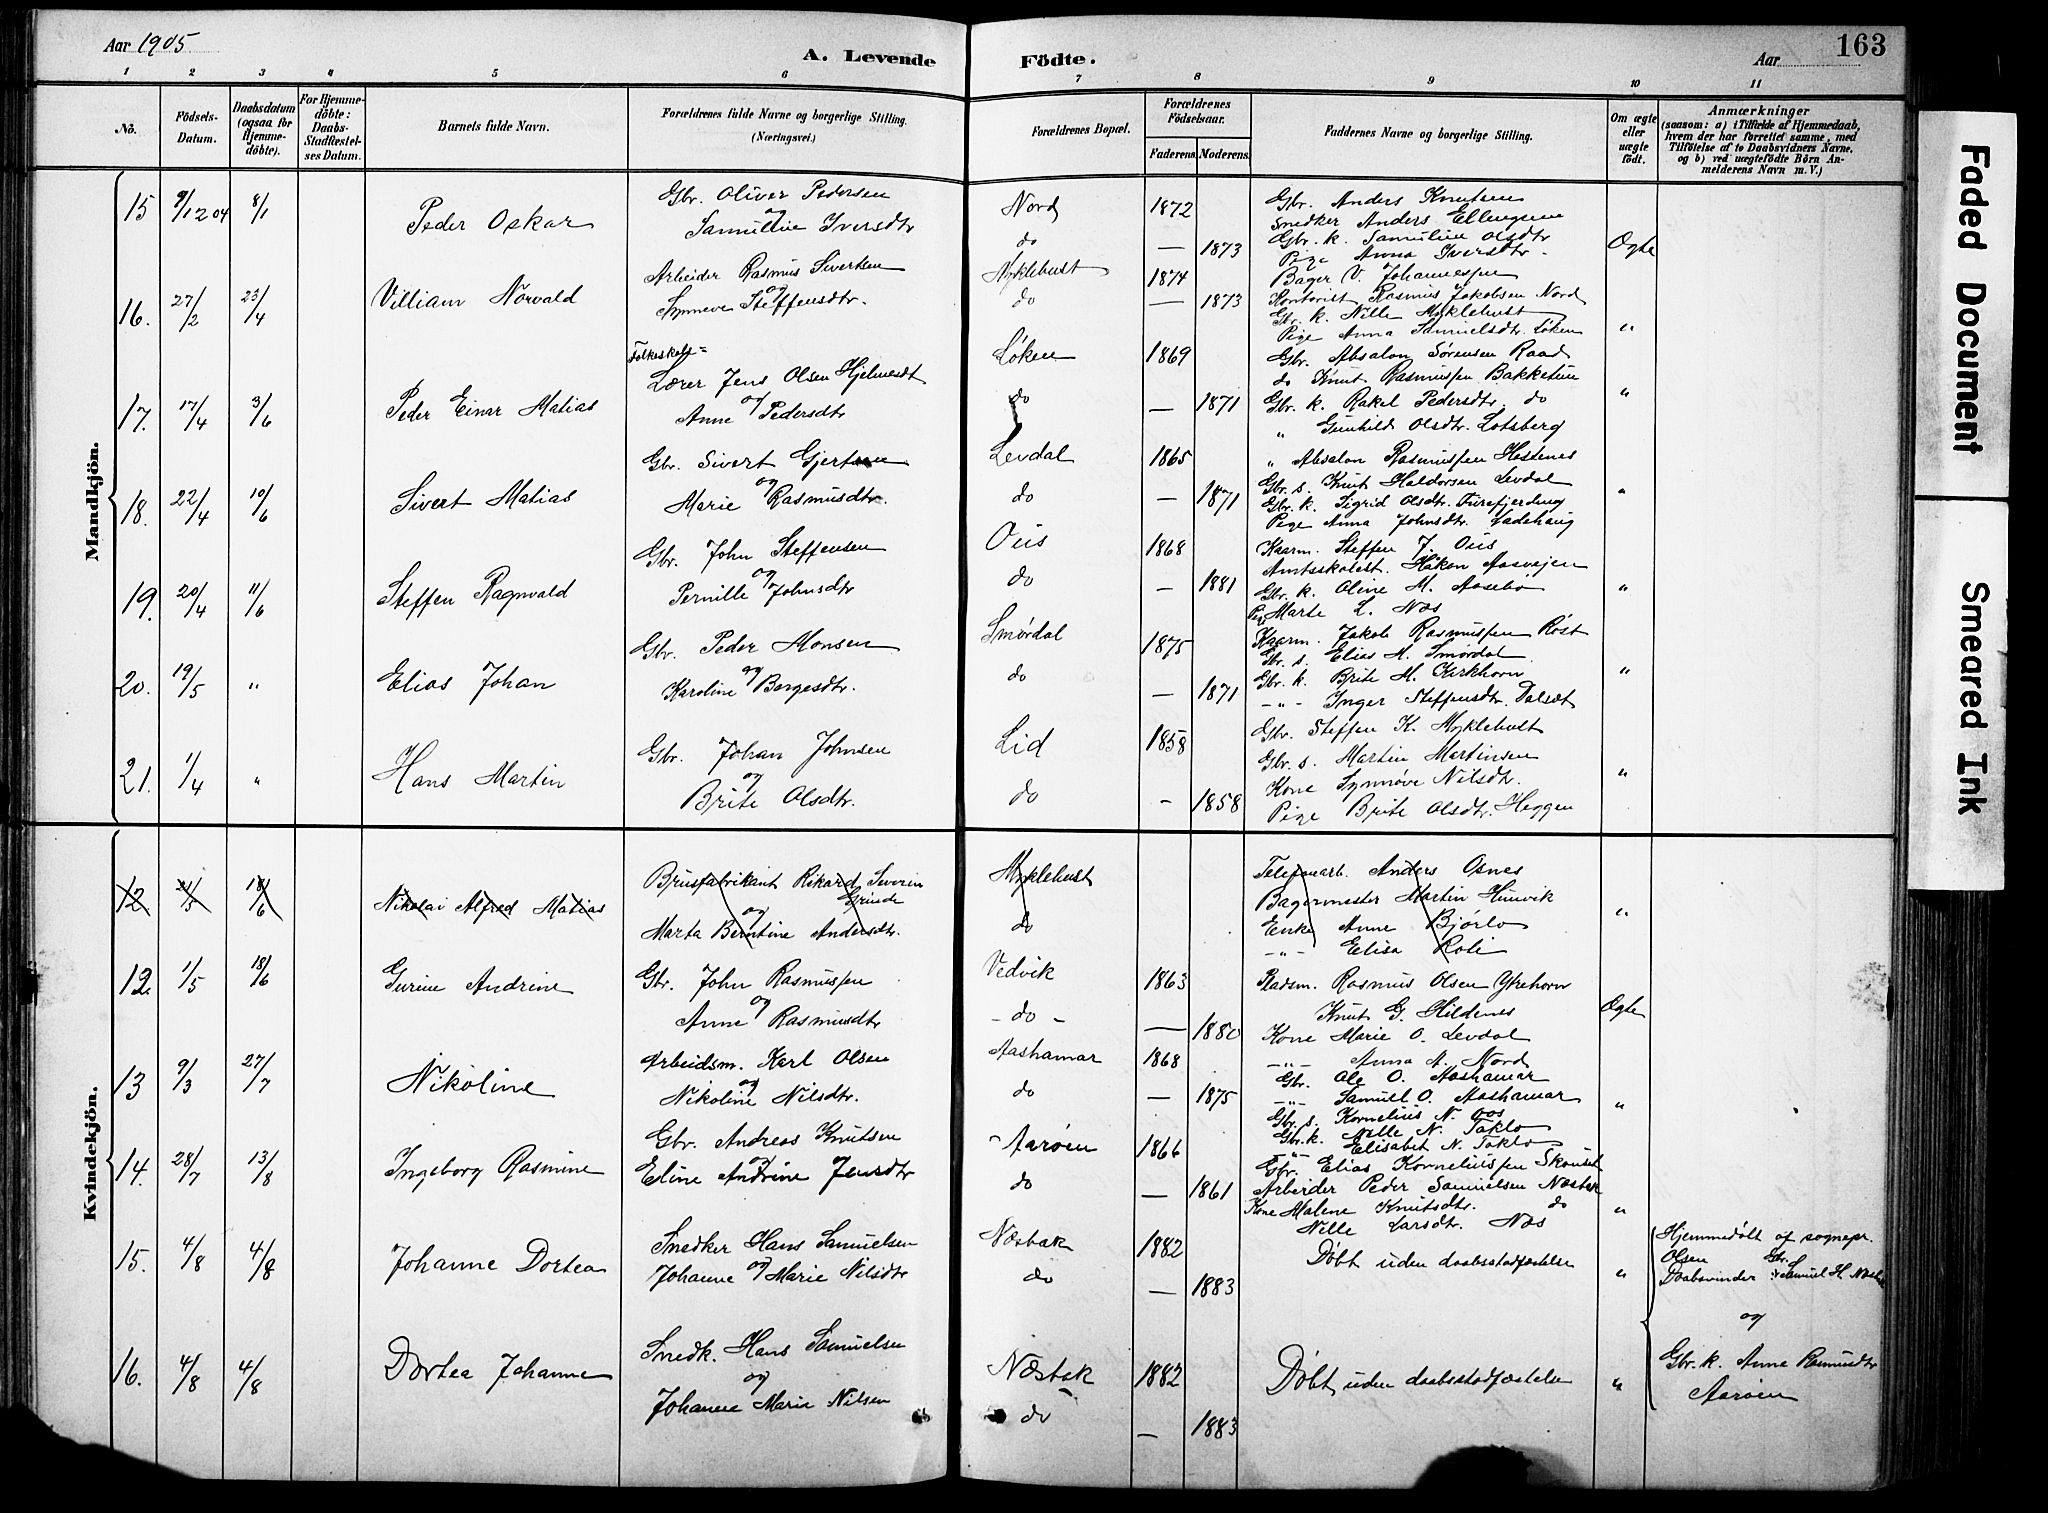 Aar 1905
A. Levende Födte.
Aar
163
1 2 3 4 5 6 7 8 9 10 11
No.
Födsels-Datum.
Daabsdatum (ogsaa for Hjemme-döbte).
For Hjemme-döbte: Daabs-Stadfæstel-ses Datum.
Barnets fulde Navn.
Forældrenes fulde Navne og borgerlige Stilling. (Næringsvei.)
Forældrenes Bopæl.
Forældrenes Födselsaar.
Faderens Moderens
Faddernes Navne og borgerlige Stilling.
Om ægte eller uægte födt.
Anmærkninger
(saasom: a) i Tilfælde af Hjemmedaab, hvem der har forrettet samme, med Tilföielse af to Daabsvidners Navne, og b) ved uægtefödte Börn An-melderens Navn m. V.)
Mandkjön.
15 9/12 04 8/1 Peder Oskar
Gbr. Oliver Pedersen
og
Samuline Iversdtr
Nord 1872
do — 1873
Gbr. Anders Knutsen
Snedker Anders Ellingsen
Gbr. k. Samuline Olsdtr
Pige Anna Iversdtr.
Ægte
16. 27/2 23/4 Villiam Norvald
Arbeider Rasmus Sivertsen
og
Synneve Steffensdtr.
Myklebust 1874
do — 1873
Bager V. Johannessen
Kontorist Rasmus Jakobsen Nord
Gbr. k. Nille Myklebust
Pige Anna Samuelsdtr. Løken
"
17. 17/4 3/6 Peder Einar Matias
Folkeskole=
Lærer Jens Olsen Hjelmesdt
og
Anne Pedersdtr
Løken 1869
do — 1871
Gbr. Absalon Sørensen Raad
do Knut Rasmussen Bakketun
Gbr. k. Rakel Pedersdtr. do
" Gunhild Olsdtr. Lotsberg
"
18. 22/4 10/6 Sivert Matias
Gbr. Sivert Gjertsen
og
Marie Rasmusdtr.
Levdal 1865
do — 1871
" Absalon Rasmussen Hessenes
Gbr. s. Knut Haldorsen Levdal
Gbr. k. Sigrid Olsdtr. Furefjerding
Pige Anna Johnsdtr. Ladehaug
"
19. 20/4 11/6 Steffen Ragnvald
Gbr. John Steffensen
og
Pernille Johnsdtr
Ous 1868
do — 1881
Kaarm. Steffen J. Ous
Amtsskolest. Håkon Aasvejen
Gbr. k. Oline M. Aasebø
Pige Marte L. Næs
"
20. 19/5 " Elias Johan
Gbr. Peder Monsen
og
Karoline Borgesdtr.
Smørdal 1875
do — 1871
Kaarm. Jakob Rasmussen Røst
Gbr. s. Elias M. Smørdal
Gbr. k. Brite M. Kirkhorn
—"— Inger Steffensdtr. Dalsæt
"
21. 1/4 " Hans Martin
Gbr. Johan Johnsen
og
Brite Olsdtr.
Lid 1858
do — 1858
Gbr. Steffen K. Myklebust
Gbr. s. Martin Martinsen
Kone Synnøve Nilsdtr.
Pige Brite Olsdtr. Heggen
"
Kvindekjön.
12 21/5 18/6 Nikolai Alfred Matias
Brusfabrikant Rikard Severin Grinde
og
Marta Berntine Andersdtr.
Myklebust
do
Telefonarb. Anders Osnes
Bagermester Martin Humvik
Enke Anne Bjørlo
—"— Elisa Roli
"
12. 1/5 18/6 Gurine Andrine
Gbr. John Rasmussen
og
Anne Rasmusdtr
Vedvik 1863
— do — — 1880
Pladsm. Rasmus Olsen Ytrehorn
Knut G. Hildenes
Kone Marie O. Levdal
—"— Anna A. Nord
Ægte
13 9/3 27/7 Nikoline
Arbeidsm. Karl Olsen
og
Nikoline Nilsdtr.
Aashamar 1868
do — 1875
Gbr. Ole O. Aashamar
—"— Samuel O. Aashamar
Gbr. s. Kornelius N. Oos
Gbr. k. Nille N. Taklo
—"— Elisabet N. Taklo
"
14. 28/7 13/8 Ingeborg Rasmine
Gbr. Andreas Knutsen
og
Eline Andrine Jensdtr
Aarøen 1866
do — 1861
Gbr. Elias Korneliussen Skouset
Arbeider Peder Samuelsen Næsbak
Kone Malene Knutsdtr. do
Nille Larsdtr. Næs
"
15. 4/8 4/8 Johanne Dortea
Snedker Hans Samuelsen
og
Johanne Marie Nilsdtr
Næsbak 1882
do — 1883
Døbt uden daabsstadfæstelse
"
Hjemmedøbt af sognepr.
Olsen
Daabsvinder: Gbr. Samuel H. Næsbak
og
Gbr. k. Anne Rasmusdtr
Aarøen
16. 4/8 4/8 Dortea Johanne
Snedk. Hans Samuelsen
og
Johanne Marie Nilsen
Næsbak 1882
do — 1883
Døbt uden daabsstadfæstelse
"
Faded Document
Smeared Ink